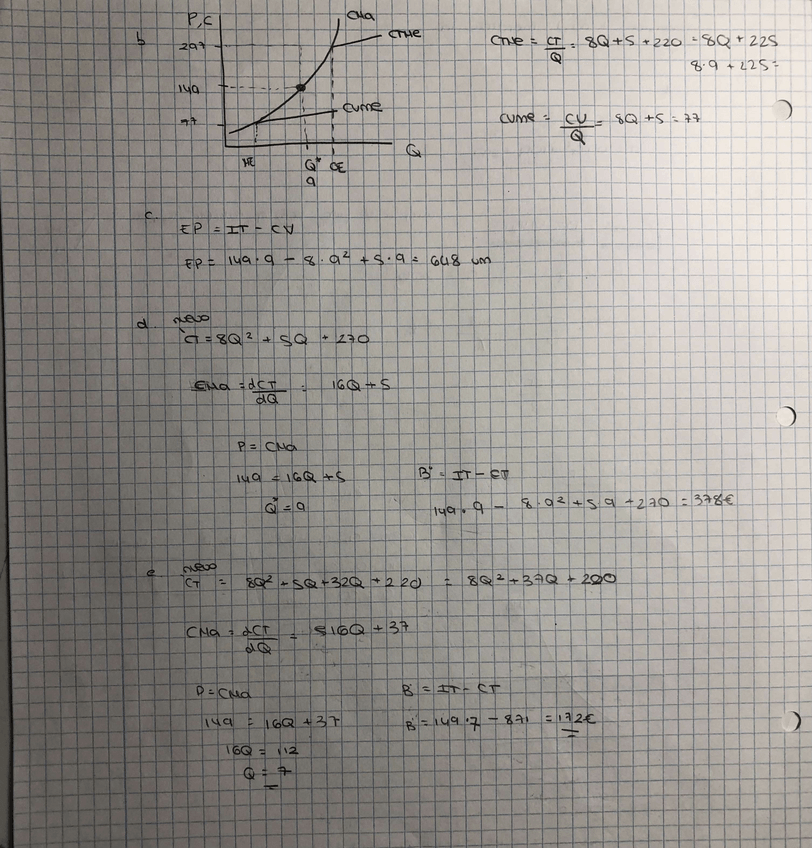 b
P,C
CMa
CTMe
297
149
77
CVMe
Q
ME
Q*
OE
9
CTMe = CT/Q = 8Q+5+220 = 8Q+225
8·9+225=
CVMe = CV/Q = 8Q+5=77
c.
EP = IT - CV
EP = 149·9 - 8·9² + 5·9 = 648 um
d. nevo
CT = 8Q² + 5Q + 270
CMa = dCT/dQ = 16Q+5
P = CMa
149 = 16Q+5
Q* = 9
B° = IT - CT
149·9 - 8·9² + 5·9 + 270 = 378€
e nevo
CT = 8Q² + 5Q + 32Q + 220 = 8Q² + 37Q + 220
CMa = dCT/dQ = 16Q + 37
P = CMa
149 = 16Q + 37
16Q = 112
Q = 7
B° = IT - CT
B° = 149·7 - 871 = 172€